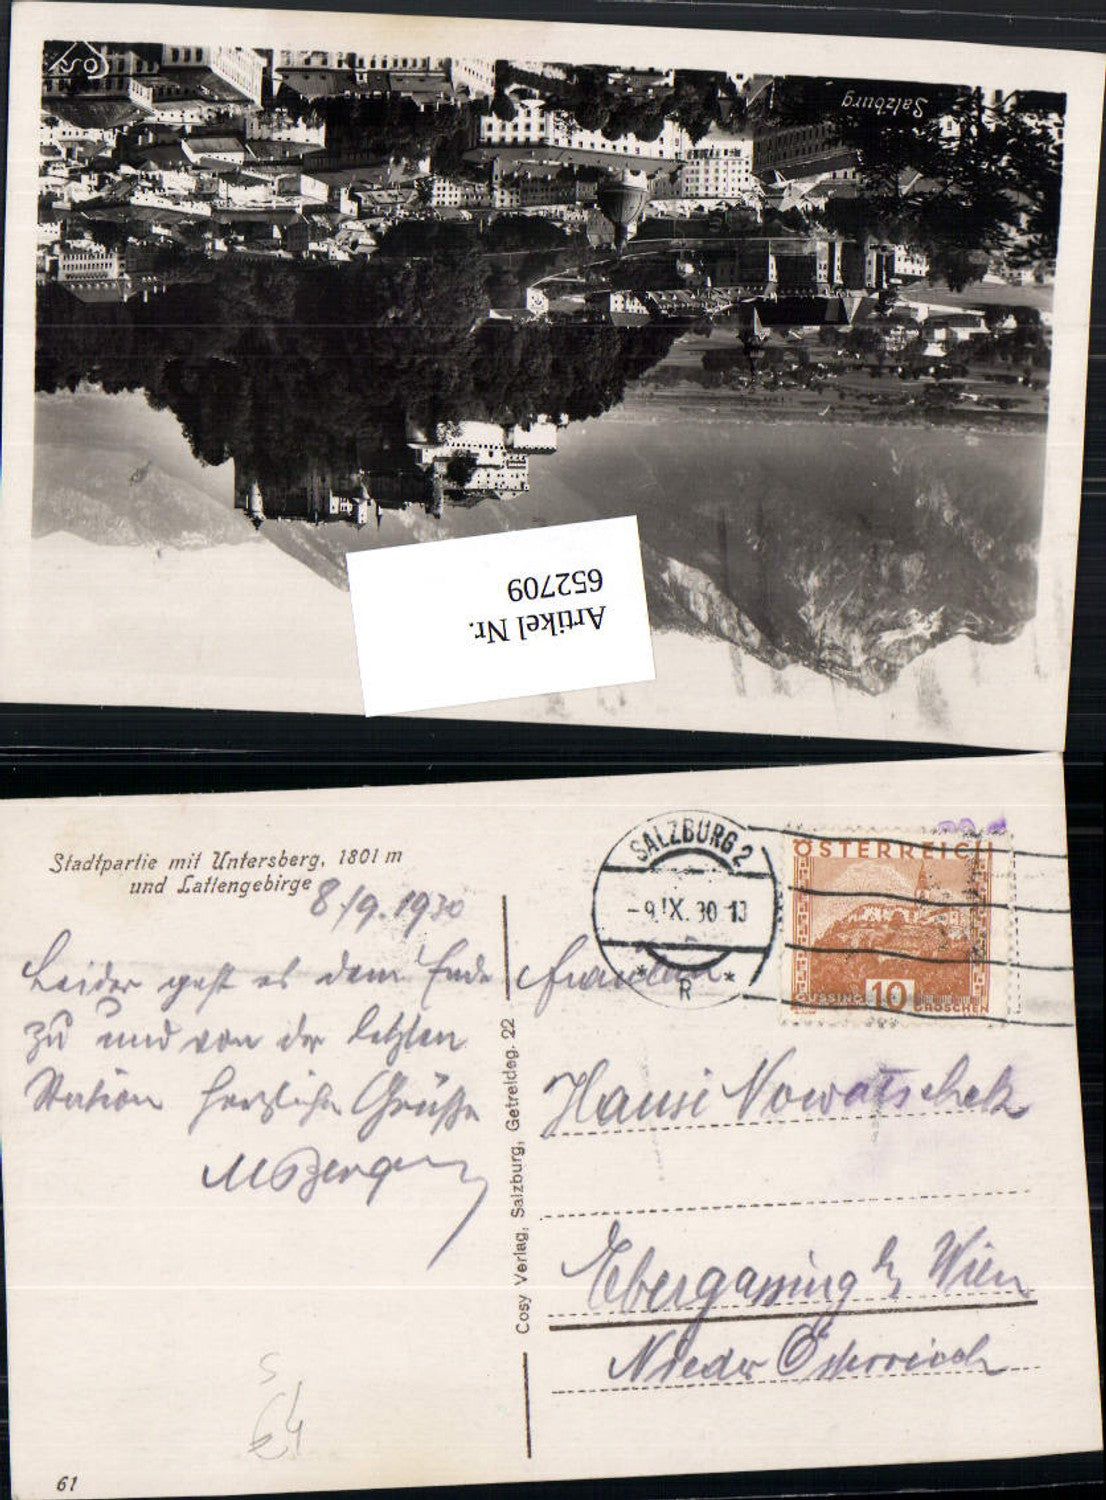 Salzburg
Artikel Nr.
652709
Stadtpartie mit Untersberg, 1801 m
und Lattengebirge
8./9. 1930
Leider geht es dem Ende
zu und von der letzten
Station herzliche Grüße
MBerger
Cosy Verlag, Salzburg, Getreideg. 22
SALZBURG 2
-9.IX.30 13
* R *
ÖSTERREICH
GÜSSING 10 GROSCHEN
Fräulein
Hansi Nowatschek
Ebergassing b. Wien
Nieder Österreich
61